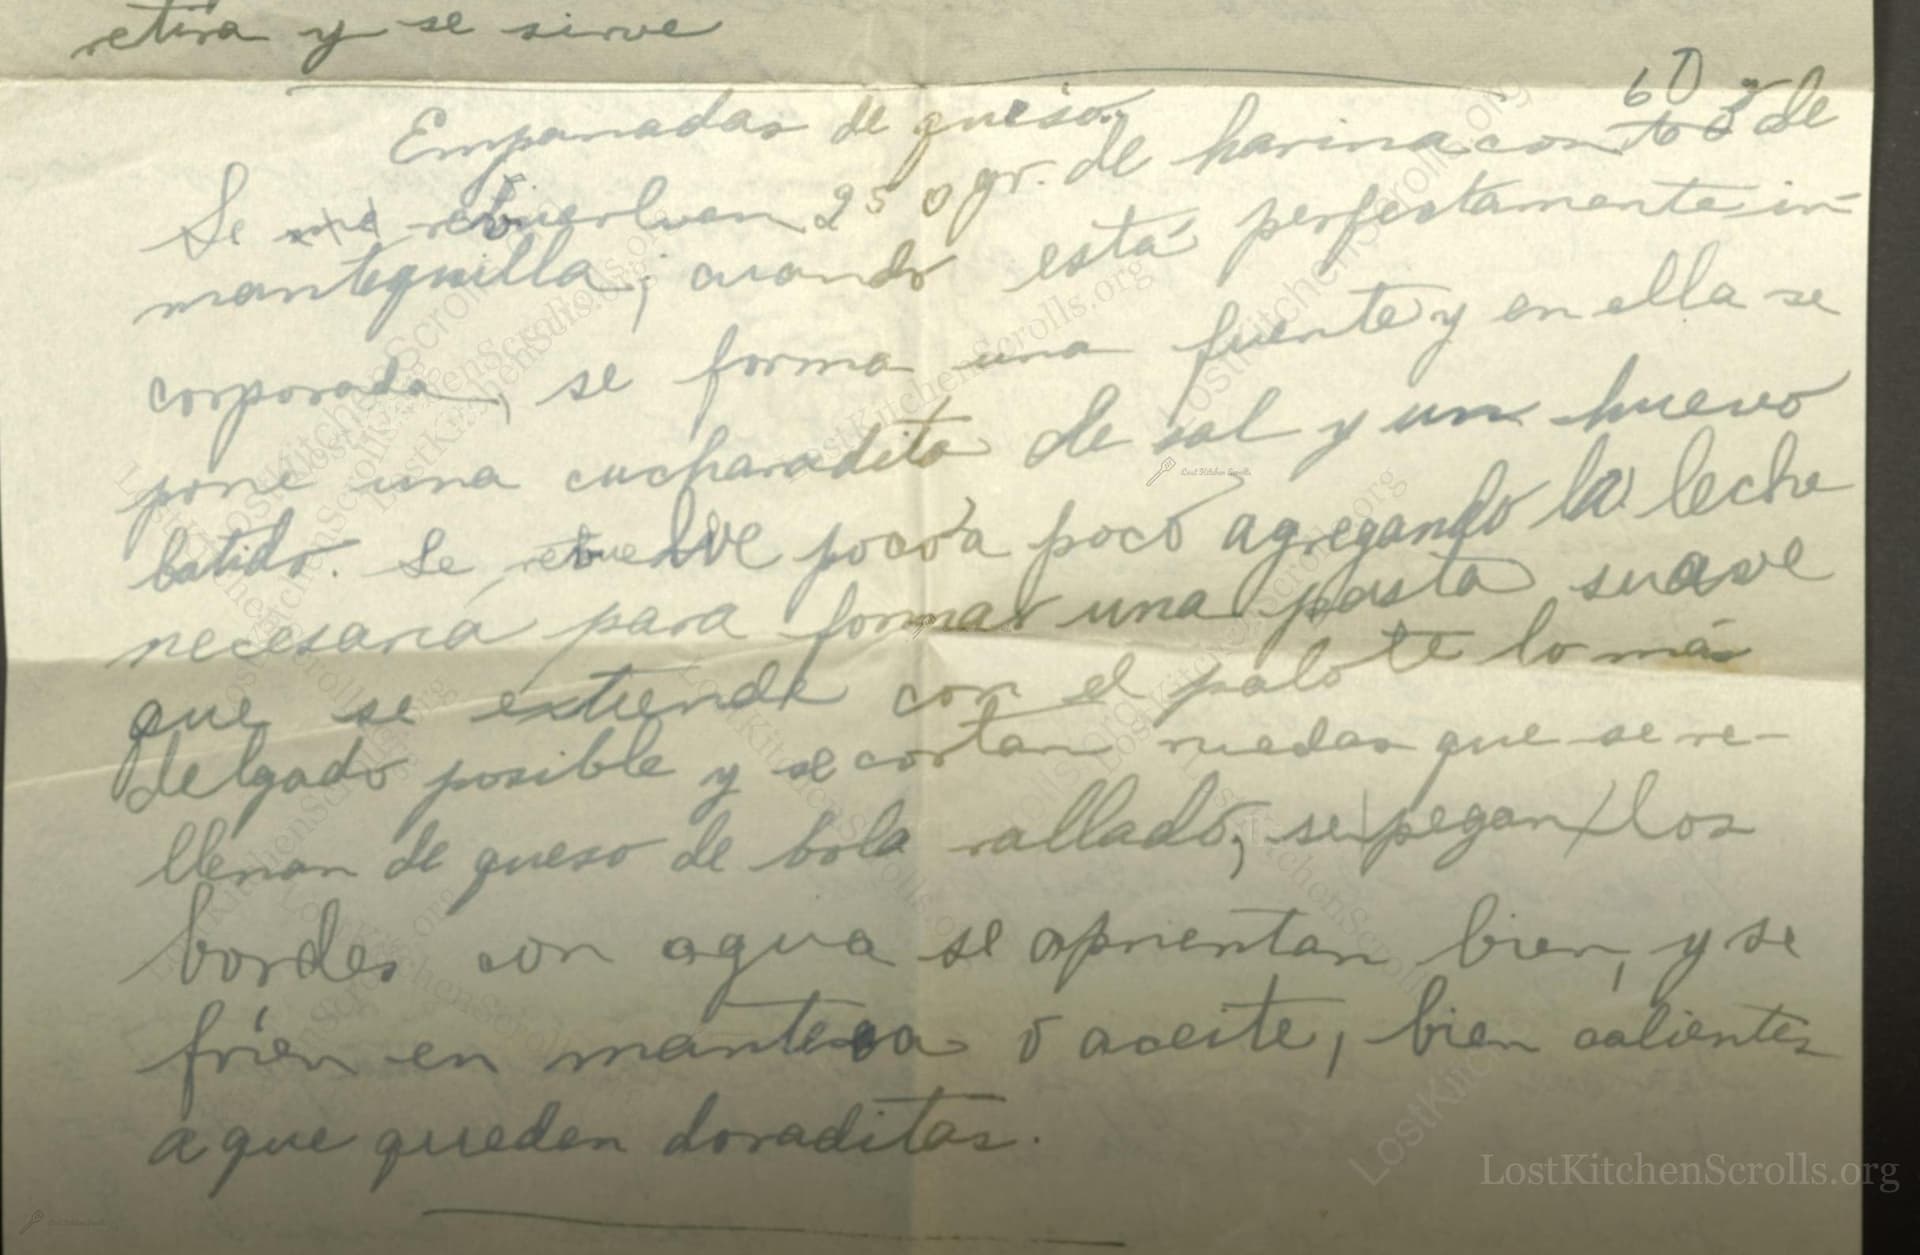 retira y se sirve
Empanadas de queso.
60
Se revuelven 250 gr. de harina con de
mantequilla; cuando está perfectamente in-
corporada, se forma una fuente y en ella se
pone una cucharadita de sal y un huevo
batido. Se revuelve poco a poco agregando la leche
necesaria para formar una pasta suave
que se extiende con el palote lo más
delgado posible y se cortan ruedas que se re-
llenan de queso de bola rallado, se pegan los
bordes con agua se aprientan bien, y se
fríen en manteca o aceite, bien calientes
a que queden doraditas.
LostKitchenScrolls.org